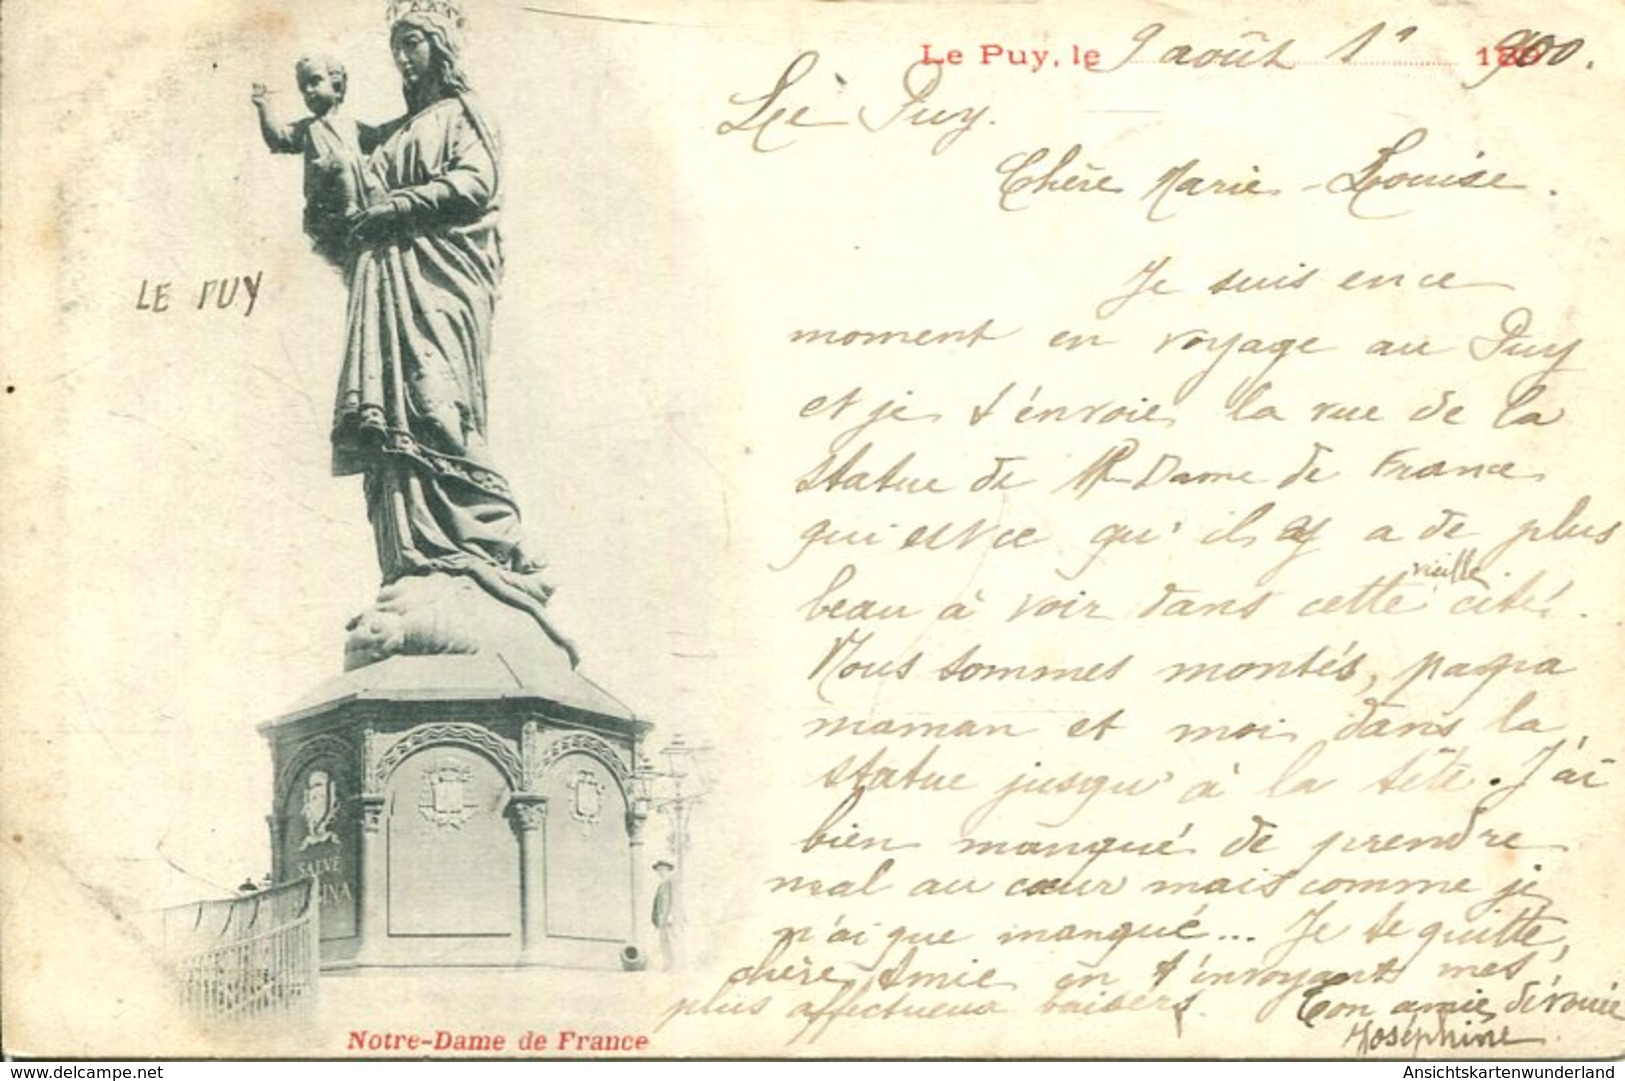 Le Puy, le 9 août 1er 1900.
Le Puy.
Chère Marie-Louise.
LE PUY
Je suis en ce
moment en voyage au Puy
et je t'envoie la vue de la
statue de Dame de France
qui est ce qu'il y a de plus
vieille
beau à voir dans cette cité.
Nous sommes montés, papa
maman et moi dans la
statue jusqu'à la tête. J'ai
bien manqué de prendre
mal au cœur mais comme je
n'ai que manqué... Je te quitte,
chère Amie en t'envoyant mes
plus affectueux baisers. Ton amie dévouée
Joséphine.
SALVE
Notre-Dame de France
AnsichtskartenWunderland